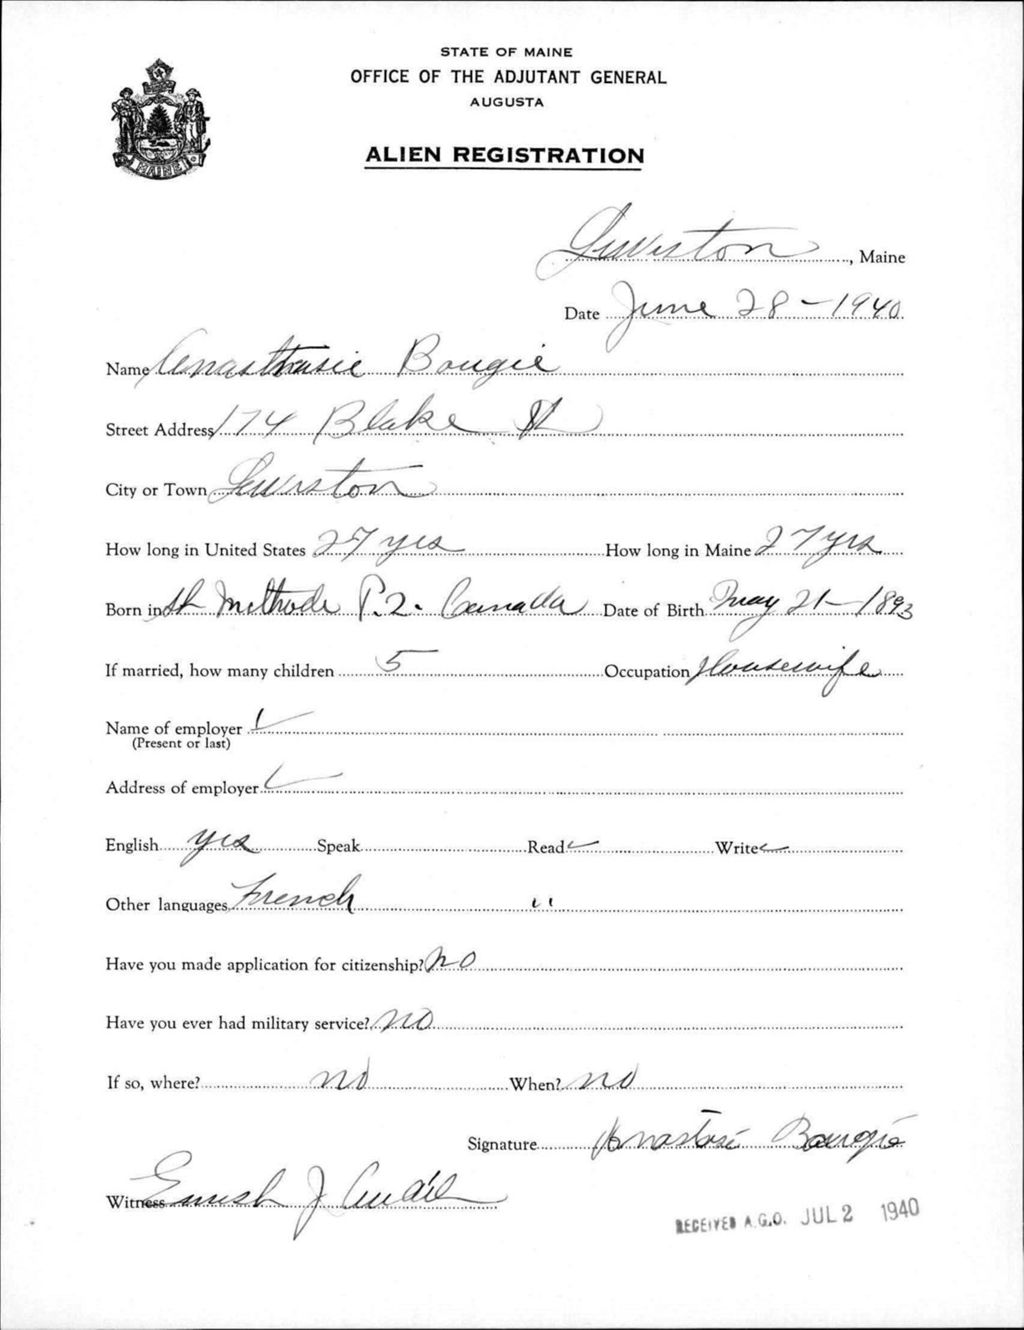 STATE OF MAINE
OFFICE OF THE ADJUTANT GENERAL
AUGUSTA
ALIEN REGISTRATION
MAINE
Lewiston, Maine
Date June 28 - 1940
Name Anasthasie Bougie
Street Address 174 Blake St
City or Town Lewiston
How long in United States 27 yrs How long in Maine 27 yrs
Born in St Methode P.2. Canada Date of Birth May 21 - 1893
If married, how many children 5 Occupation Housewife
Name of employer ✓
(Present or last)
Address of employer ✓
English yes Speak Read ✓ Write ✓
Other languages French "
Have you made application for citizenship? No
Have you ever had military service? no
If so, where? no When? no
Signature Anastasi Bougie
Witness J
RECEIVED A.G.O. JUL 2 1940